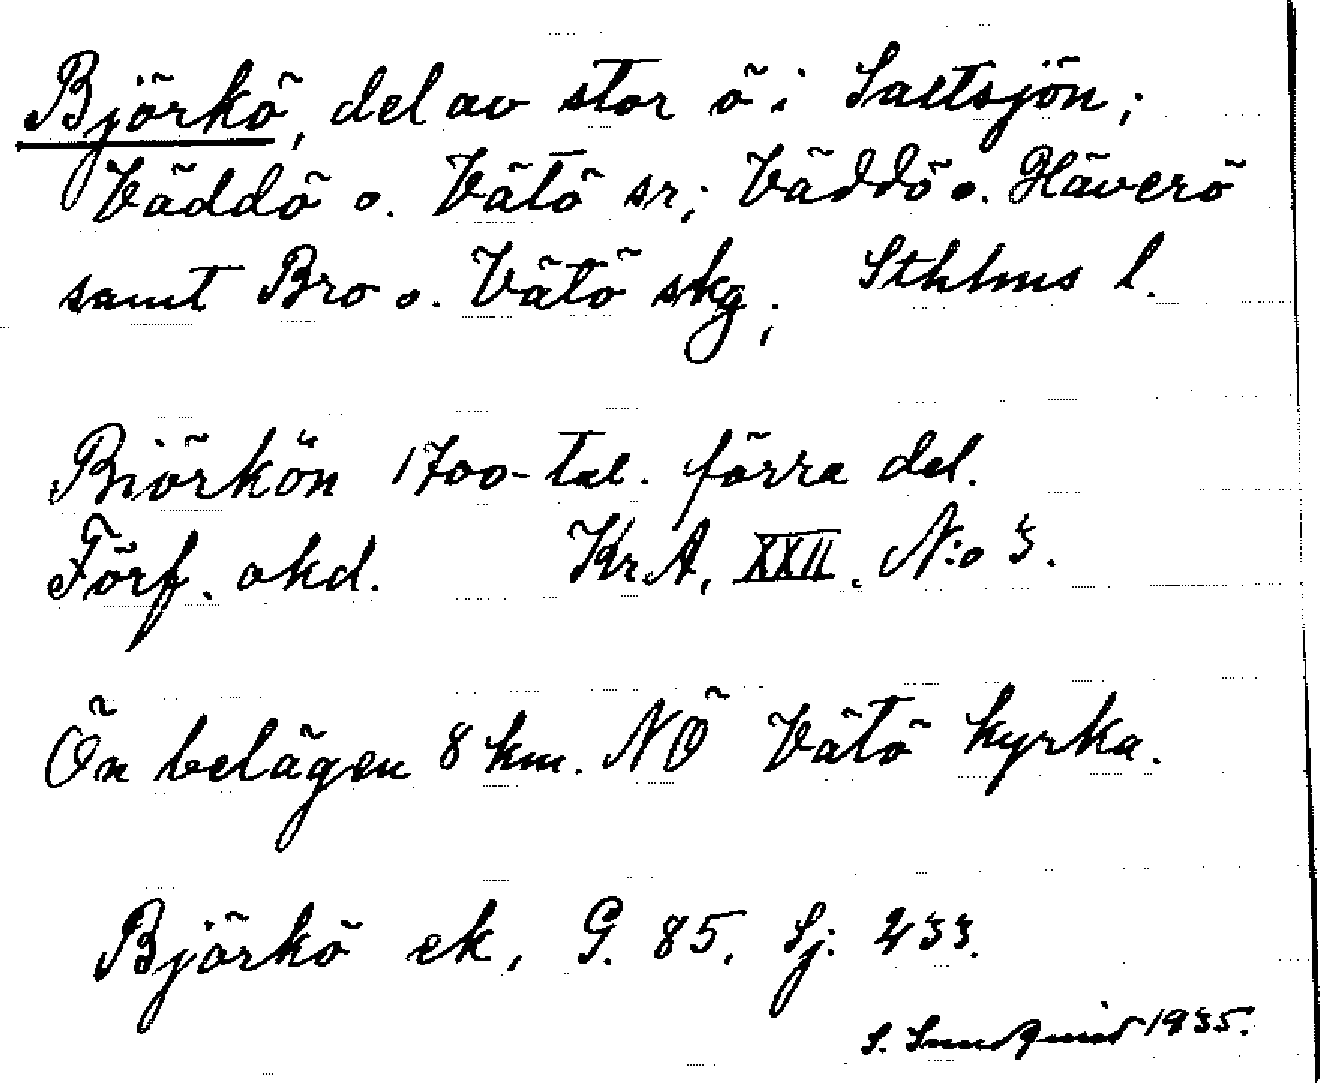 Björkö, del av stor ö i Saltsjön;
Väddö o. Vätö sr; Väddö o. Häverö
samt Bro o. Vätö skg; Sthlms l.
Biörkön 1700-tal. förra del.
Förf. okd. Kr.A, XXII. N:o 3.
Ön belägen 8 km. NÖ Vätö kyrka.
Björkö ek, G. 85, Sj. 233.
S. Sundquist 1935.